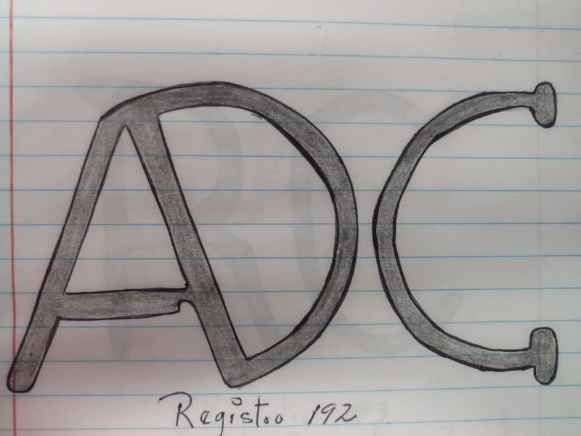 ADC
Regist.oo 192